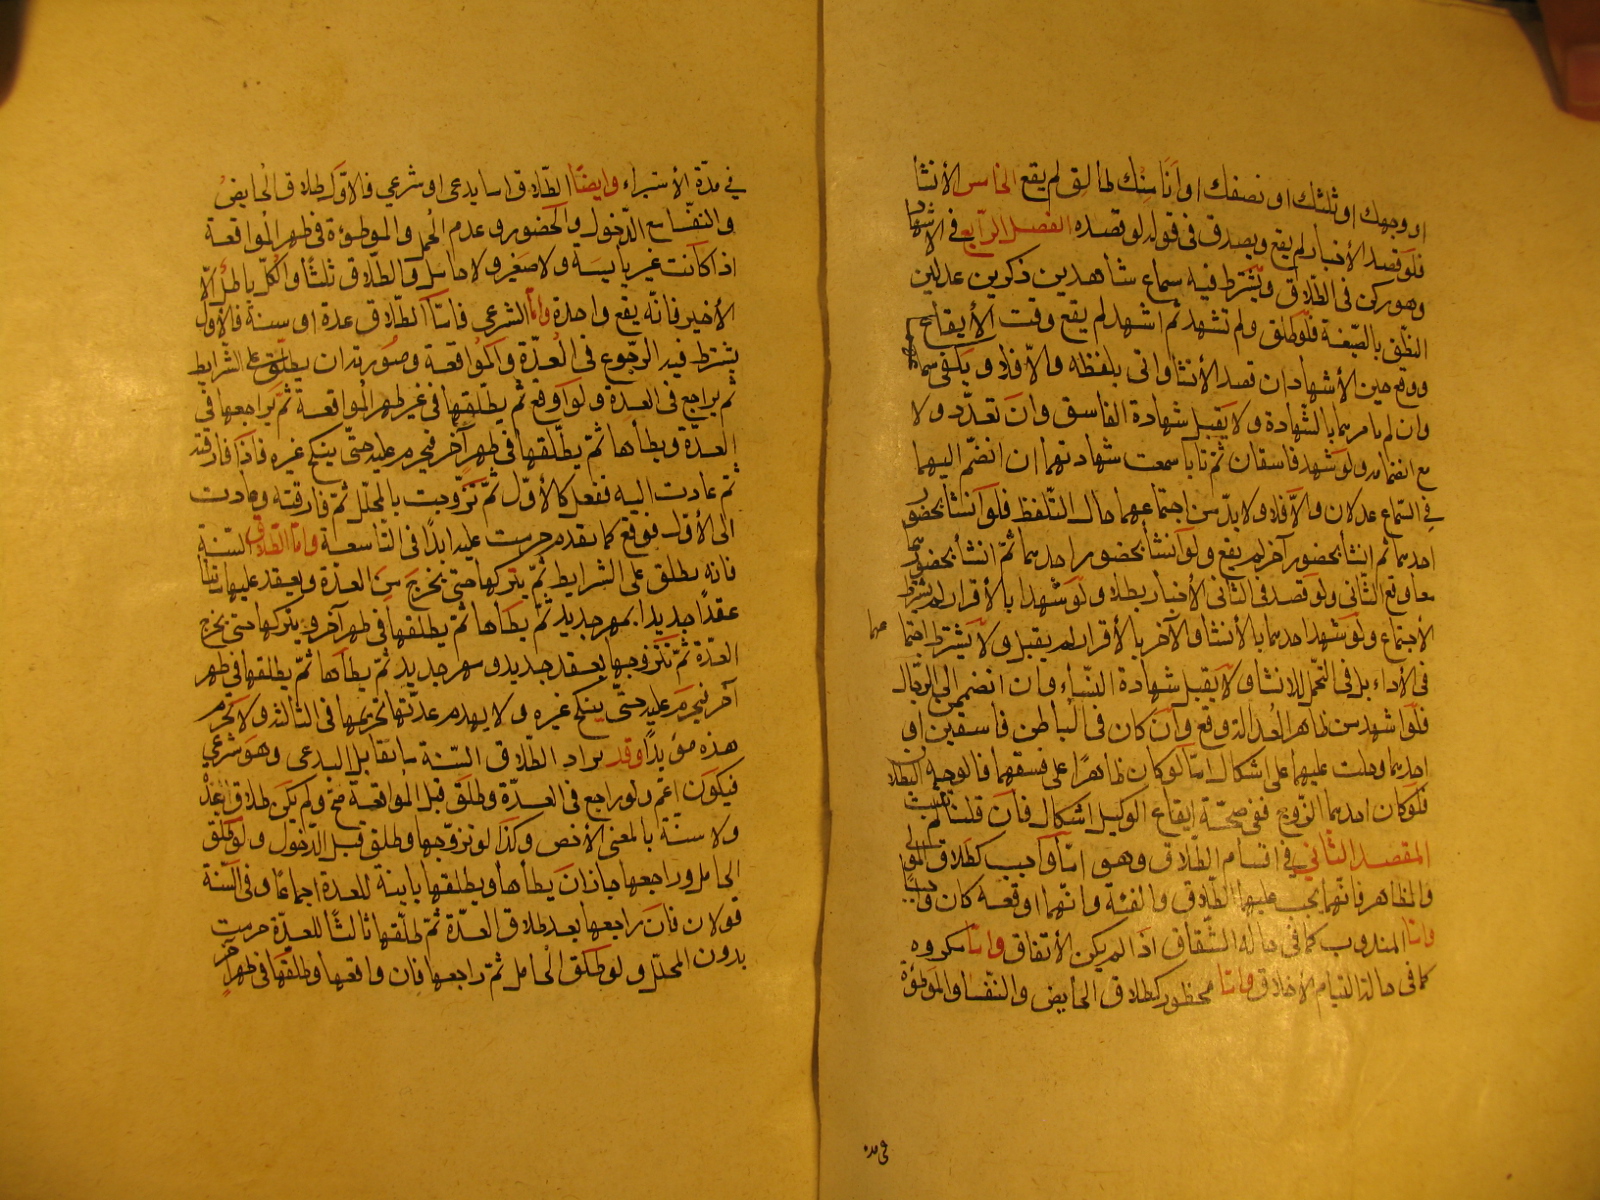 او وجهك او ثلثك او نصفك او أنا منك طالق لم يقع الخامس الأنشأ
فلو قصد الأخبار لم يقع ويصدق فى قوله لو قصده الفصل الرّابع فى الاشهاد
وهو ركن فى الطلاق ويشترط فيه سماع شاهدين ذكرين عدلين
النطق بالصّيغة فلو طلق ولم تشهد ثم اشهد لم يقع وقت الأيقاع
ووقع حين الأشهاد ان قصد الأنشأ واتى بلفظه والّا فلا ويكفى سماعهما
وان لم يامرهما بالشهادة ولا يقبل شهادة الفاسق وان تعدّد ولا
مع انضمامه ولو شهد فاسقان ثم تابا سمعت شهادتهما ان انضمّ اليهما
فى السّماع عدلان والّا فلا ولا بدّ من اجتماعهما حال التّلفظ فلو انشأ بحضور
احدهما ثم انشأ بحضور آخر لم يقع ولو انشأ بحضور احدهما ثمّ انشأ بحضورهما
معا وقع الثانى ولو قصد فى الثانى الأخبار بطلا ولو شهدا بالأقرار لم يشترط
الأجتماع ولو شهد احدهما بالأنشأ والآخر بالأقرار لم يقبل ولا يشترط اجتما عهما
فى الأداء بل فى التحمّل للانشأ ولا يقبل شهادة النّساء وان انضممن الى الرجال
فلو اشهد من ظاهر العدالة وقع وان كان فى الباطن فاسقين او
احدهما وحلت عليهما على اشكال امّا لو كان ظاهرًا على فسقهما فالوجه البطلان
فلو كان احدهما الزوج ففى صحّة ايقاع الوكيل اشكال فان قلنا به لم يثبت
المقصد الثّانى فى اقسام الطّلاق وهو امّا واجب كطلاق المولى
والمظاهر فانّهما يجب عليهما الطّلاق والفئة وانّهما اوقعه كان واجبًا
وامّا المندوب كما فى حاله الشّقاق اذا لم يكن الأتفاق وامّا مكروه
كما فى حالة التيام الأخلاق وامّا محظور كطلاق الحأيض والنفسا والموطؤة
فى مدّ
فى مدّة الأستبراء وايضًا الطّلاق اما بدعى او شرعي فالاوّل طلاق الحايض
والنفّسا مع الدّخول والحضور وعدم الحمل والموطؤة فى طهر المواقعة
اذا كانت غير يايسة ولا صغيرة ولا حامل والطّلاق ثلثًا والكلّ باطل الّا
الأخير فانّه يقع واحدة وامّا الشرعى فامّا الطلاق عدة او سنة فالأول
يشترط فيه الرجّوع فى العدّة والمواقعة وصورته ان يطلّق على الشرايط
ثم يراجع فى العدّة ولو اوقع ثم يطلّقها فى غير طهر المواقعة ثمّ يراجعها فى
العدّة ويطأها ثم يطلّقها فى طهر آخر فيحرم عليه حتّى ينكح غيره فاذا فارقته
ثم عادت اليه ففعل كالأوّل ثم تزوجت بالمحلّل ثمّ فارقته وعادت
الى الأول فوقع كما تقدم حرمت عليه ابدًا فى التاسعة وامّا الطّلاق السّنة
فانه يطلق على الشرايط ثمّ يتركها حتى يخرج من العدّة ويعقد عليها ثانيًا
عقدًا جديدًا بمهر جديد ثمّ يطأها ثم يطلقها فى طهر آخر ويتركها حتى يخرج
العدّة ثمّ تزوجها بعقد جديد ومهر جديد ثم يطأها ثمّ يطلقها فى طهر
آخر فيحرم عليه حتّى ينكح غيره ولا يهدم عدّتها تحريمها فى الثالثة ولا تحرم
هذه مؤبدًا وقد يراد الطّلاق السّنة ما تقابل البدعى وهو شرعي
فيكون اعم ولو راجع فى العدّة وطلق قبل المواقعة صحّ ولم يكن طلاق عدّة
ولا سنّة بالمعنى الأخص وكذا لو تزوّجها وطلق قبل الدّخول ولو طلق
الحامل وراجعها جاز ان يطأها ويطلقها ثانية للعدة اجماعًا وفى السنة
قولان فان راجعها بعد طلاق العدّة ثم طلّقها ثالثًا للعدّة حرمت
بدون المحلّل ولو طلق الحامل ثمّ راجعها فان واقعها وطلقها فى طهر آخر